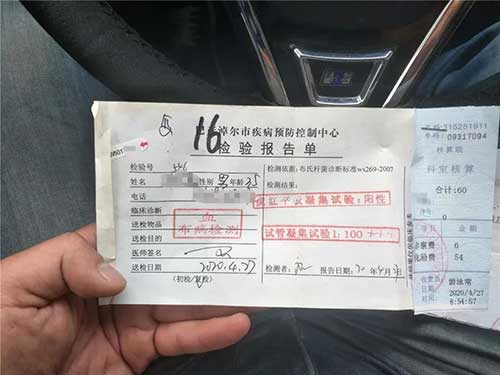 16
巴彦淖尔市疾病预防控制中心
检验报告单
检验号
姓名 性别 男 年龄 35
电话
临床诊断
送检物品 血
送检目的 布病检测
医师签名
送检日期 2020.4.27
(初检/复检)
检测依据: 布氏杆菌诊断标准ws269-2007
检测结果:
虎红平板凝集试验: 阳性
试管凝集试验1: 100 +++
检测者: 报告日期:
315281911
号码: 09317094
核算联
科室核算
合计:60
金额
诊察费 6
化验费 54
收费员: 游泳常
日期: 2020/4/27
时间: 8:54:57